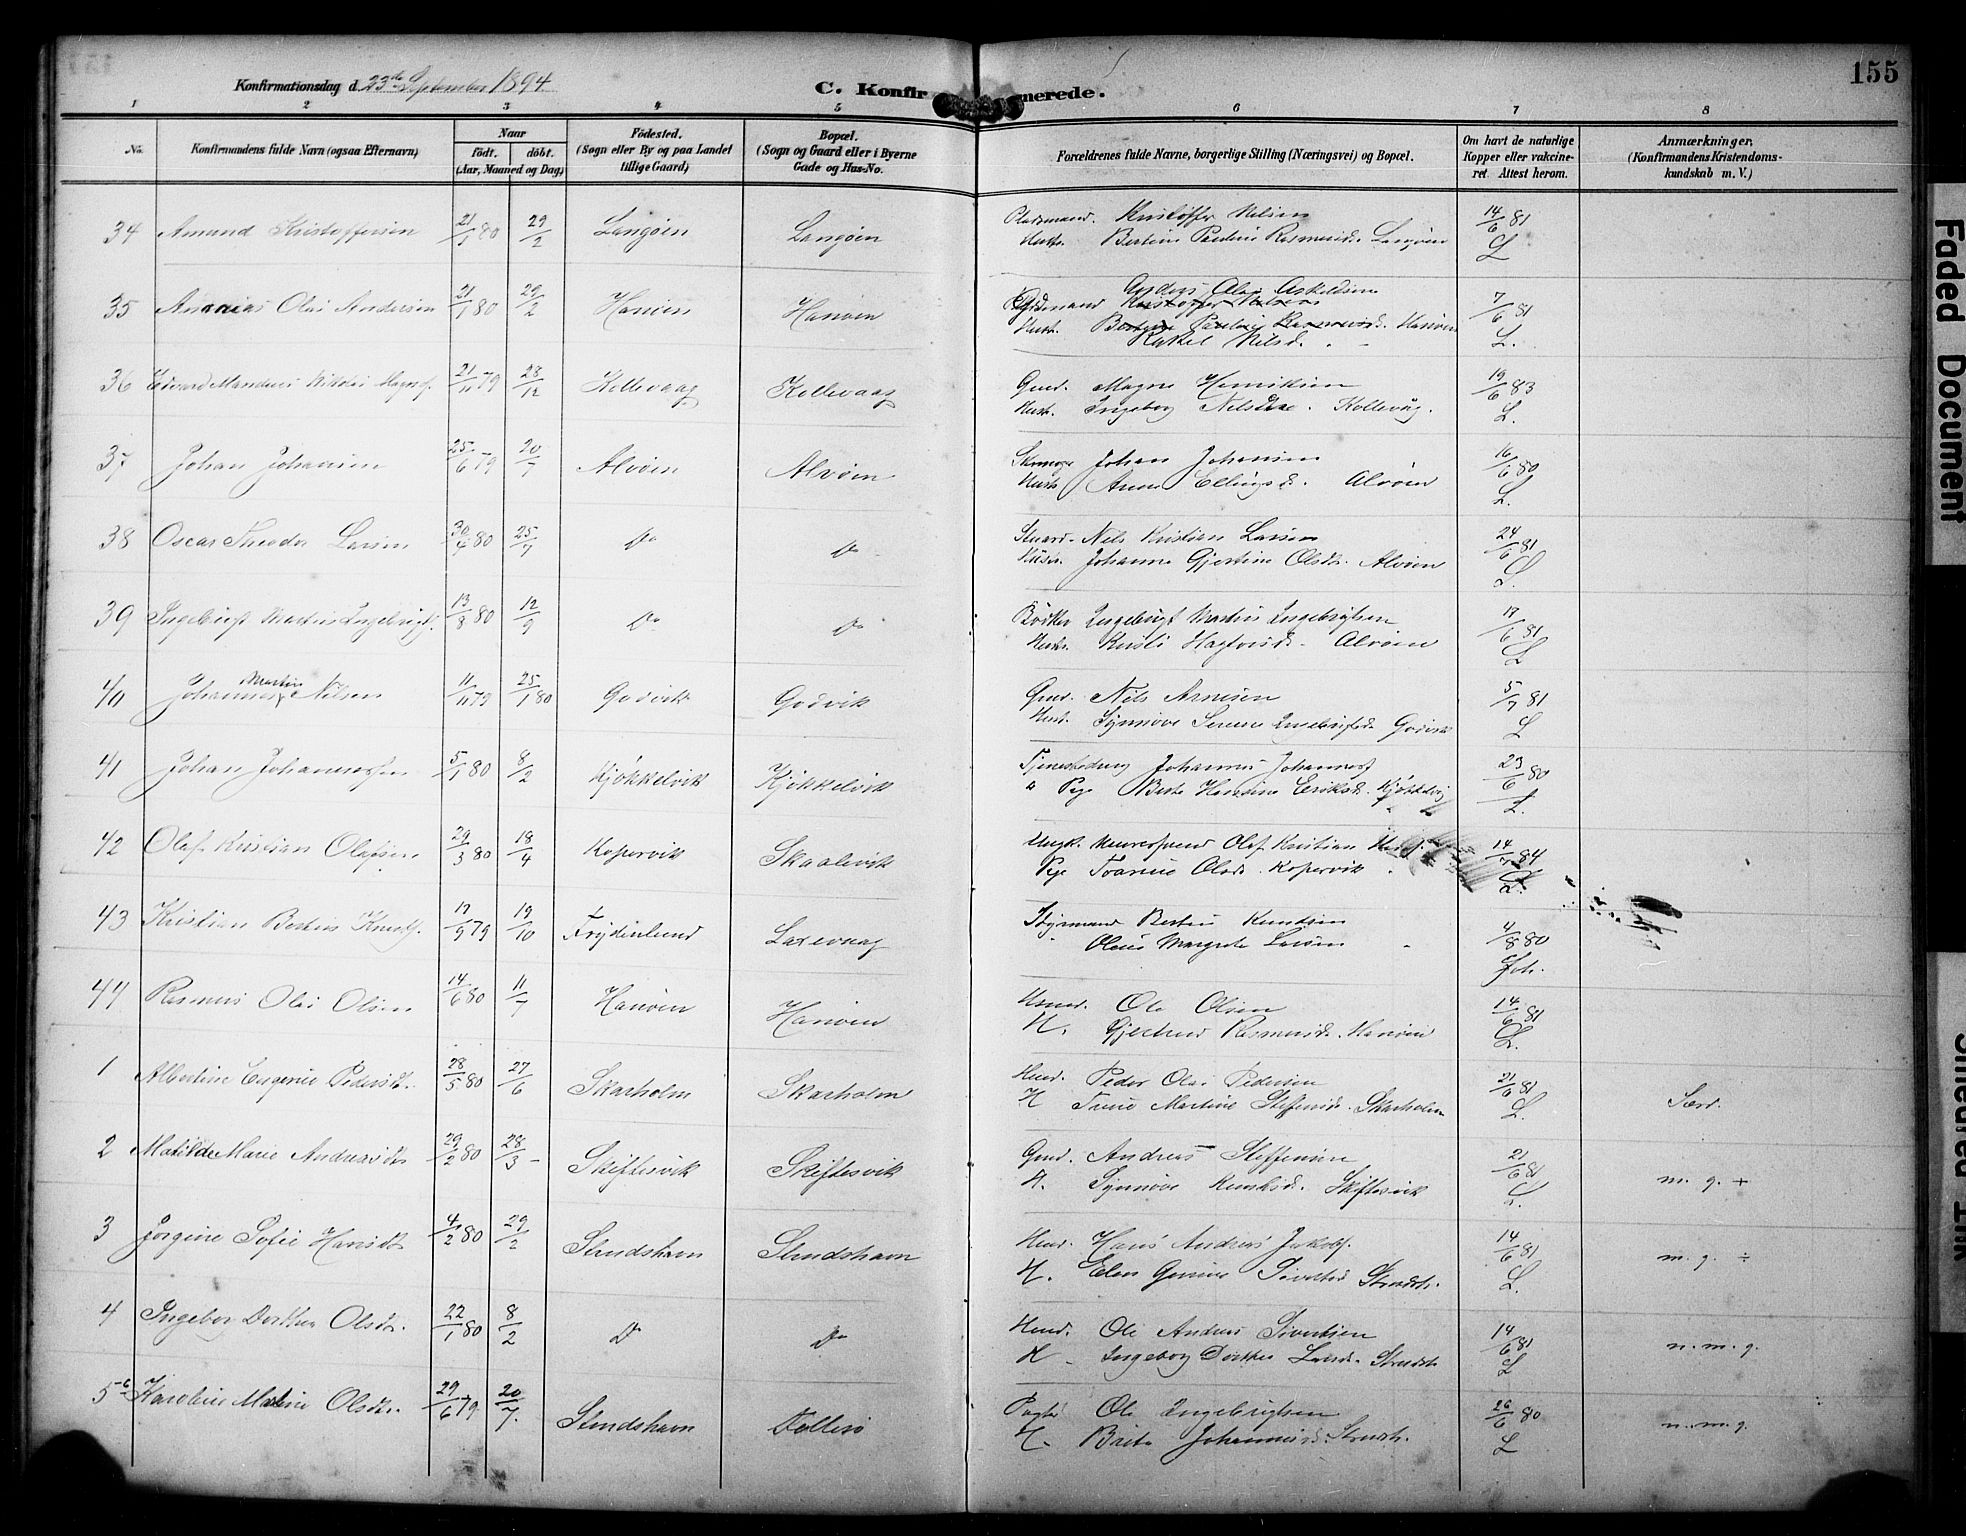 155
Konfirmationsdag d. 23de September 1894
C. Konfirmerede.
1 2 3 4 5 6 7 8
No.
Konfirmandens fulde Navn (ogsaa Efternavn)
Naar
født. døbt.
(Aar, Maaned og Dag)
Fødested.
(Sogn eller By og paa Landet
tillige Gaard)
Bopæl.
(Sogn og Gaard eller i Byerne
Gade og Hus-No.
Forældrenes fulde Navne, borgerlige Stilling (Næringsvei) og Bopæl.
Om havt de naturlige
Kopper eller vakcine-
ret. Attest herom.
Anmærkninger,
(Konfirmandens Kristendoms-
kundskab m. V.)
34 Amund Kristoffersen 21/1 80 29/2 Langøen Langøen Pladsmand. Kristoffer Nilsen 14/6 81
Hustr. Bertine Pauline Rasmusd. Langøen L
35 Ananias Olai Andersen 21/1 80 29/2 Hanøen Hanøen Anders Olai Askeldsen 7/6 81
Pladsmand Kristoffer Nilsen
Hustr. Bertine Pauline Rasmusd. Hanøen L.
Rakel Nilsd.
36 Edvard Mandrus Nikolai Magnes. 21/11 79 28/12 Kollevaag Kollevaag Gmd. Magne Henriksen 19/6 83
Hustr. Ingeborg Nilsdtr. Kollevåg. L
37 Johan Johansen 25/6 79 20/7 Alvøen Alvøen Johan Johansen 16/6 80
Hustr. Anne Ellingsd. Alvøen L
38 Oscar Theodor Larsen 30/4 80 25/7 Do Do Stuard. Nils Kristian Larsen 24/6 81
Hustr. Johanne Gjertine Olsdtr. Alvøen L.
39 Ingebrigt Martin Ingebrigts. 13/8 80 12/9 Do Do Bødker Ingebrigt Martin Ingebrigtsen 17/6 81
Hustr. Kristi Hagtvisd. Alvøen L
40 Johannes Martin Nilsen 11/11 79 25/1 80 Godvik Godvik Gmd. Nils Arnesen 5/7 81
Hust. Synnøve Serine Ingebrigtsd. Godvik L
41 Johan Johannessen 5/1 80 8/2 Kjøkkelvik Kjøkkelvik Tjenestedreng Johannes Johanness. 23/6 80
a Pige Berte Hansine Eriksd. Kjøkkelvig L.
42 Olaf Kristian Olafsen 29/3 80 18/4 Kopervik Skaalevik Ungk. Olaf Kristian 14/7 84
Pige Olsd. Kopervik L.
43 Kristian Bertin Knuds. 17/9 79 19/10 Frydenlund Laxevaag Styrmand Bertin Knudsen 4/8 80
Oline Margrete Larsen Joh.
44 Rasmus Olai Olsen 14/6 80 11/7 Hanøen Hanøen Hmd. Ole Olsen 14/6 81
H. Gjertrud Rasmusd. Hanøen L.
1 Albertine Eugenie Pedersdt. 28/5 80 27/6 Skarholm Skarholm Hmd. Peder Olai Pedersen 21/6 81
H Trine Martine Steffensd. Skarholm L. Særd.
2 Matilde Marie Andreasdtr 29/2 80 28/3 Skiftesvik Skiftesvik Gmd. Andreas Steffensen 21/6 81
H. Synnøve Knudsd. Skiftesvik L. m. g. +
3 Jørgine Sofie Hansdt 4/2 80 29/2 Strudshavn Strudshavn Hmd. Hans Andreas Jakobs. 14/6 81
H. Elen Gurine Sivertsd Strudsh. L. m. g. ÷
4 Ingeborg Dorthea Olsdtr. 22/1 80 8/2 Do Do Hmd. Ole Andreas Sivertsen 14/6 81
H Ingeborg Dorthea Larsd. Strudsh L n. m. g.
5 Karoline Maline Olsdtr. 29/6 79 20/7. Strudshavn Follesø Ole Ingebrigtsen 26/6 80
H. Brita Johannesd. Strudsh. L n. m. g.
Faded Document